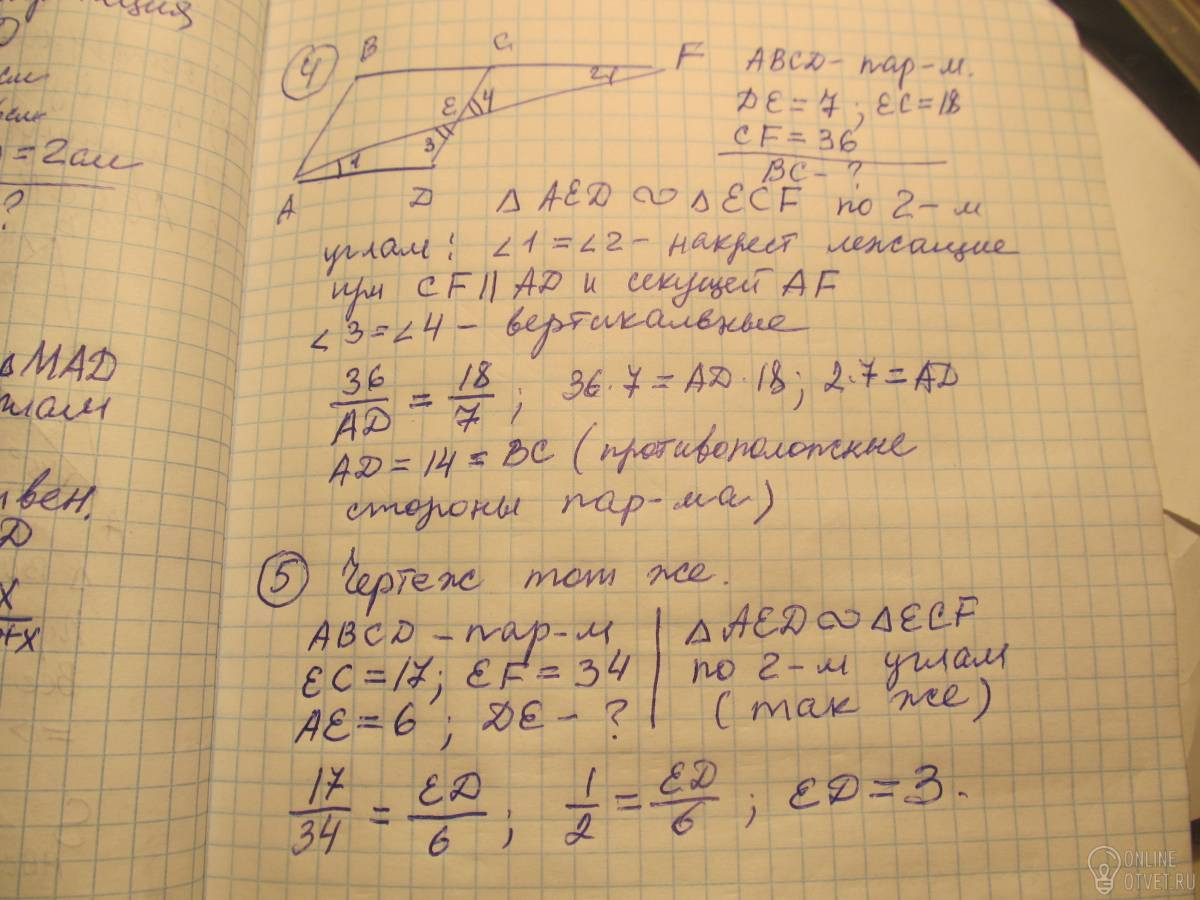 = 2см
?
MAD
твен.
D
4
B C F
E 4 2
3
1
A D
ABCD - пар-м.
DE = 7; EC = 18
CF = 36
BC - ?
△ AED ∾ △ ECF по 2-м
углам: ∠1 = ∠2 - накрест лежащие
при CF || AD и секущей AF
∠3 = ∠4 - вертикальные
36/AD = 18/7; 36·7 = AD·18; 2·7 = AD
AD = 14 = BC (противоположные
стороны пар-ма)
5 Чертеж тот же.
ABCD - пар-м
EC = 17; EF = 34
AE = 6; DE - ?
△ AED ∾ △ ECF
по 2-м углам
(так же)
17/34 = ED/6; 1/2 = ED/6; ED = 3.
ONLINE
OTVET.RU